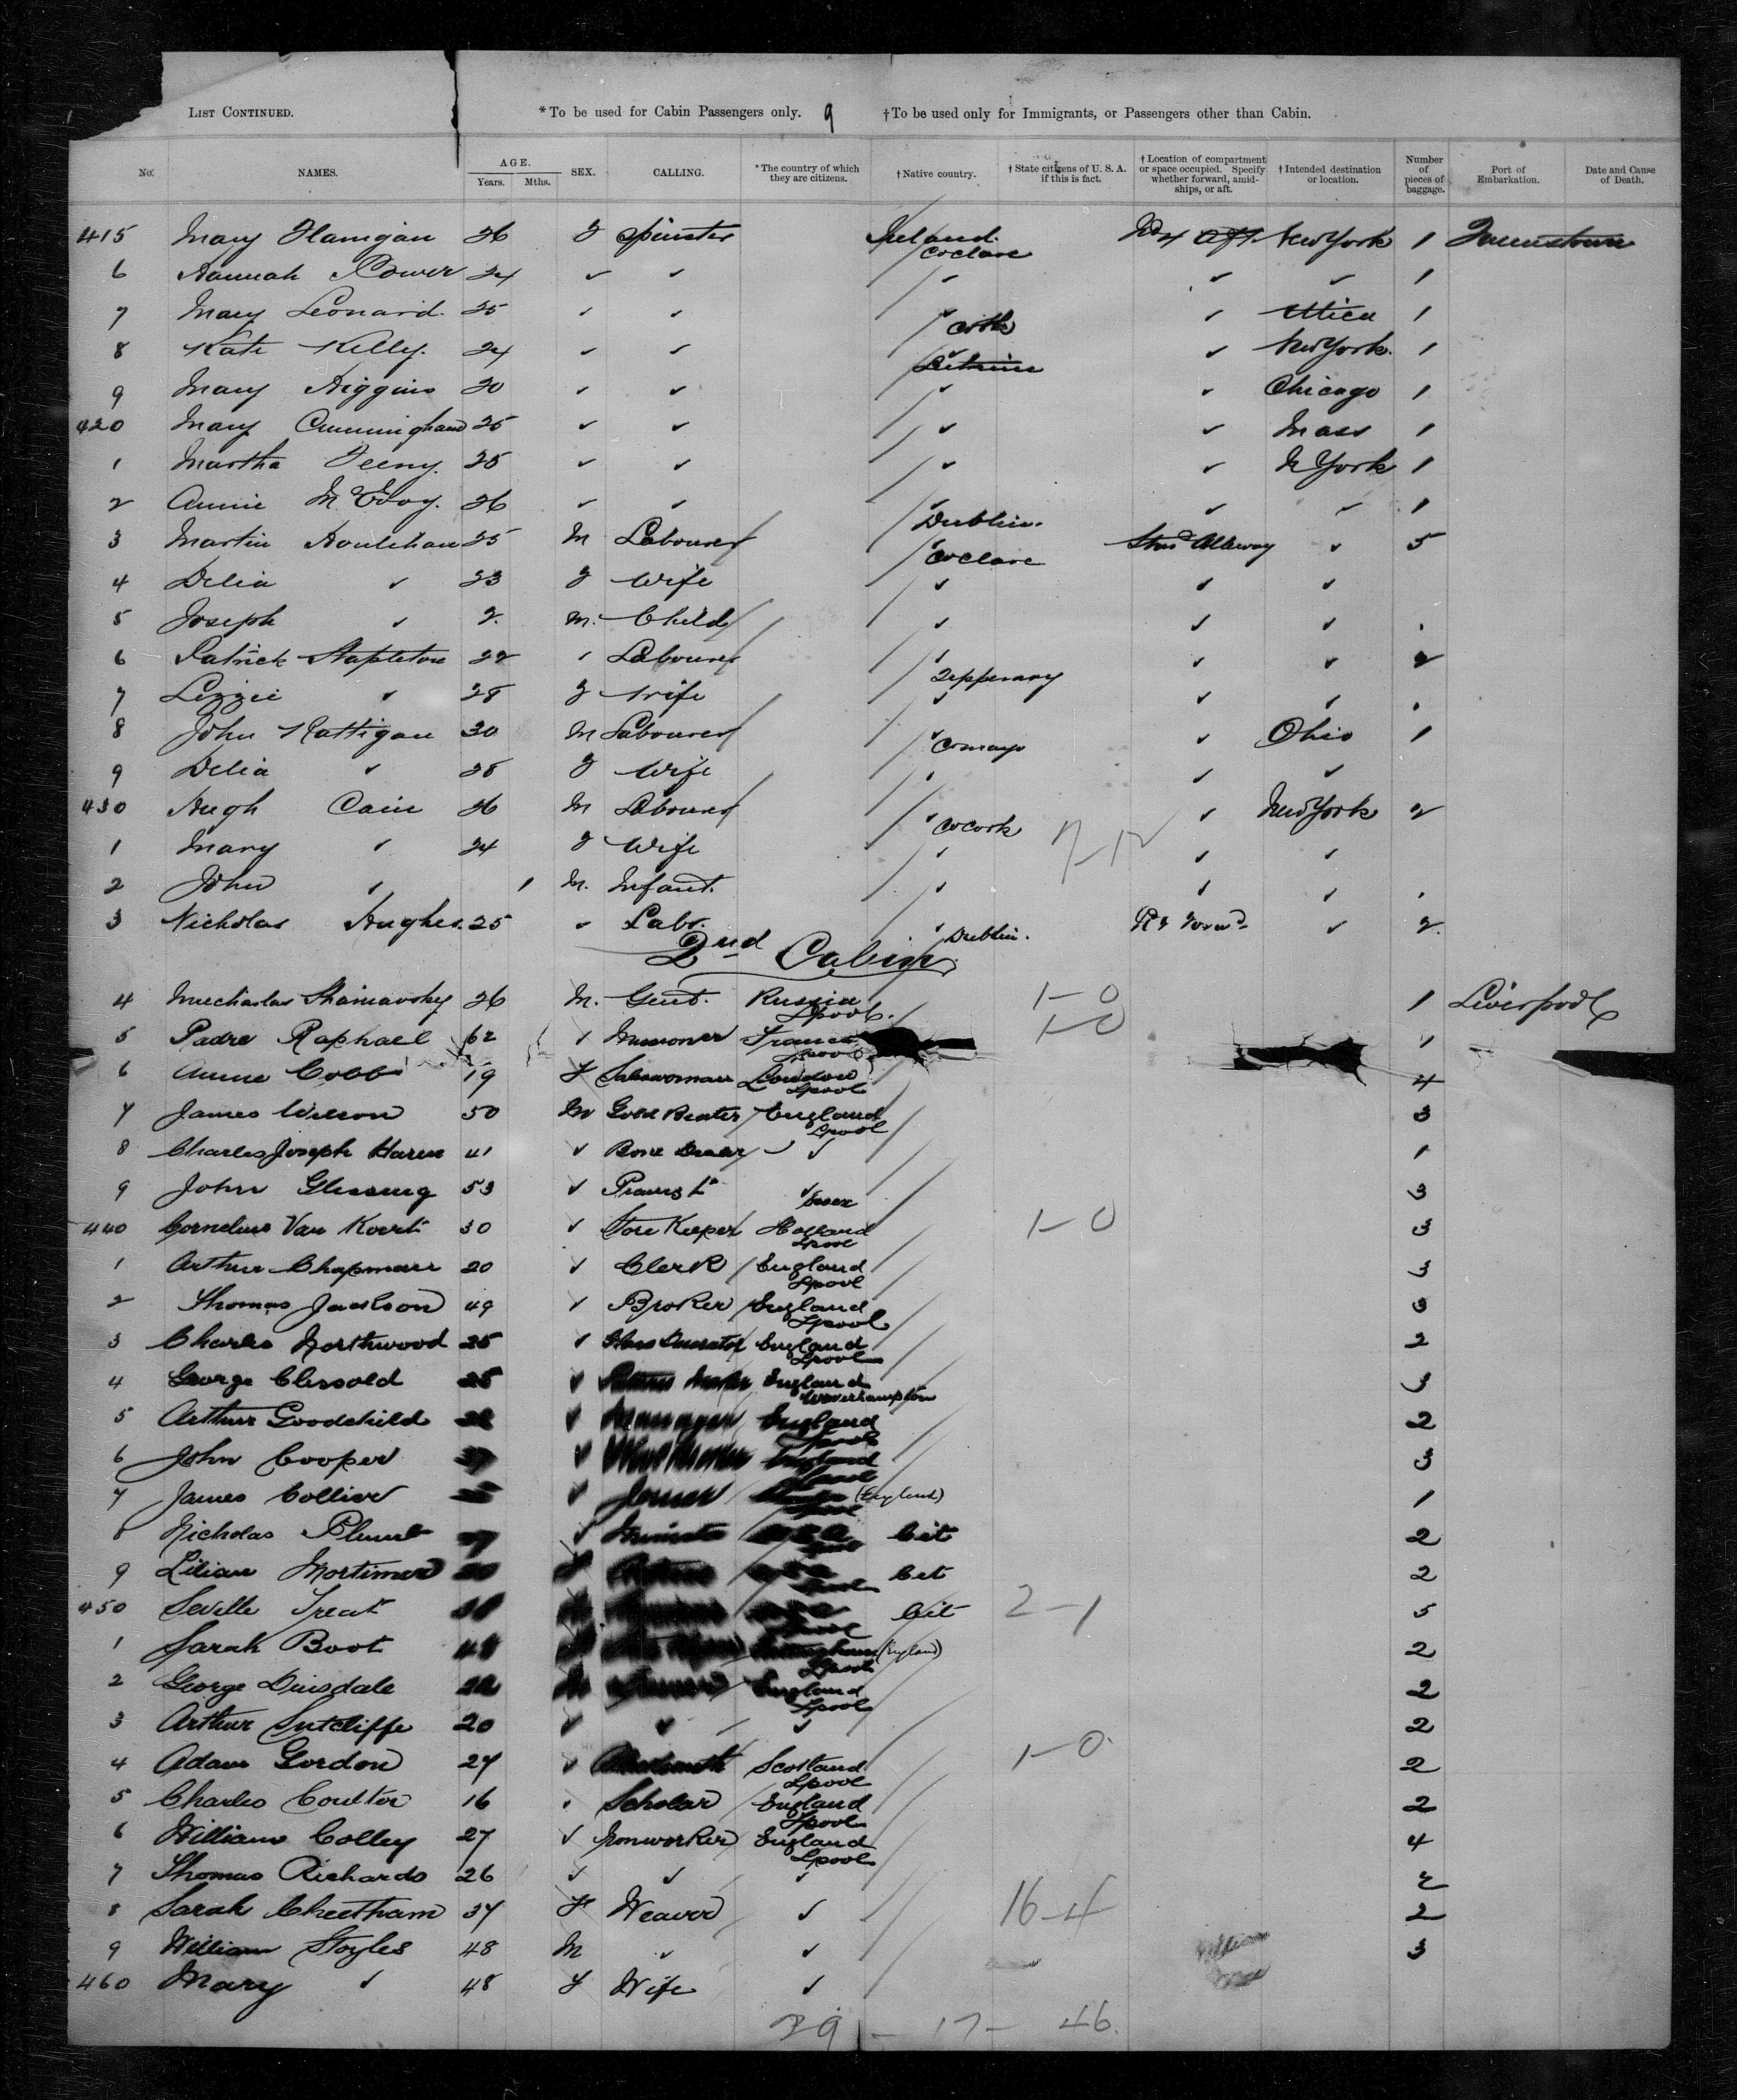 LIST CONTINUED. *To be used for Cabin Passengers only. 9 †To be used only for Immigrants, or Passengers other than Cabin.
No. NAMES. AGE. Years. Mths. SEX. CALLING. *The country of which they are citizens. †Native country. †State citizens of U. S. A. if this is fact. †Location of compartment or space occupied. Specify whether forward, amidships, or aft. †Intended destination or location. Number of pieces of baggage. Port of Embarkation. Date and Cause of Death.
415 Mary Flanigan 26 F Spinster Ireland Co Clare Aft New York 1 Queenstown
6 Hannah Power 24 ✓ ✓ ✓ ✓ ✓ 1
7 Mary Leonard 25 ✓ ✓ ✓ Cork ✓ Utica 1
8 Kate Kelly. 24 ✓ ✓ ✓ Leitrim ✓ New York. 1
9 Mary Higgins 20 ✓ ✓ ✓ ✓ Chicago 1
420 Mary Cunningham 25 ✓ ✓ ✓ ✓ Mass 1
1 Martha Feeny. 25 ✓ ✓ ✓ ✓ N York 1
2 Annie McEvoy. 26 ✓ ✓ ✓ Dublin. ✓ ✓ 1
3 Martin Houlihan 25 M Labourer ✓ Co Clare ✓ 5
4 Delia ✓ 23 F Wife ✓ ✓ ✓
5 Joseph ✓ 2. M. Child ✓ ✓ ✓ .
6 Patrick Stapleton 22 ✓ Labourer ✓ Tipperary ✓ ✓ 2
7 Lizzie ✓ 28 F Wife ✓ ✓ ✓ .
8 John Rattigan 30 M Labourer ✓ Co Mayo ✓ Ohio 1
9 Delia ✓ 28 F Wife ✓ ✓ ✓
430 Hugh Cain 26 M Labourer ✓ Co Cork ✓ New York 2
1 Mary ✓ 24 F Wife ✓ ✓ ✓
2 John ✓ 1 M. Infant. ✓ ✓ ✓ .
3 Nicholas Hughes. 25 ✓ Labr. ✓ Dublin. Forwd ✓ 2.
2nd Cabin
4 26 M. Gent. Russia Lpool. 1-0 1 Liverpool
5 Padre Raphael 62 ✓ France Lpool 1-0 1
6 Annie Cobb 19 F Saleswoman London Lpool 4
7 James Wilson 50 M Gold Beater England Lpool 3
8 Charles Joseph Haren 41 ✓ Bone Dealer ✓ ✓ 1
9 John Glissing 53 ✓ ✓ Essex 3
440 Cornelius Van Koert 30 ✓ Store Keeper Holland Lpool 1-0 3
1 Arthur Chapman 20 ✓ Clerk England Lpool 3
2 Thomas Jackson 49 ✓ Broker England Lpool 3
3 Charles Northwood 25 ✓ Glass Decorator England Lpool 2
4 George Clissold 25 ✓ England Wolverhampton 3
5 Arthur Goodchild ✓ Manager England Lpool 2
6 John Cooper ✓ England 3
7 James Collier ✓ Joiner (England) Lpool 1
8 Nicholas Plumb ✓ Minister Cit 2
9 Lilian Mortimer F Cit 2
450 Seville Treat M Lpool Cit 2-1 5
1 Sarah Boot F (England) Lpool 2
2 George Dinsdale 22 M England Lpool 2
3 Arthur Sutcliffe 20 ✓ ✓ ✓ 2
4 Adam Gordon 27 ✓ Scotland Lpool 1-0. 2
5 Charles Coulter 16 ✓ Scholar England Lpool 2
6 William Colley 27 ✓ Ironworker England Lpool 4
7 Thomas Richards 26 ✓ ✓ ✓ 2
8 Sarah Cheetham 37 F Weaver ✓ 16-4 2
9 William Stoyles 48 M ✓ ✓ 3
460 Mary ✓ 48 F Wife ✓
29 - 17 - 46.